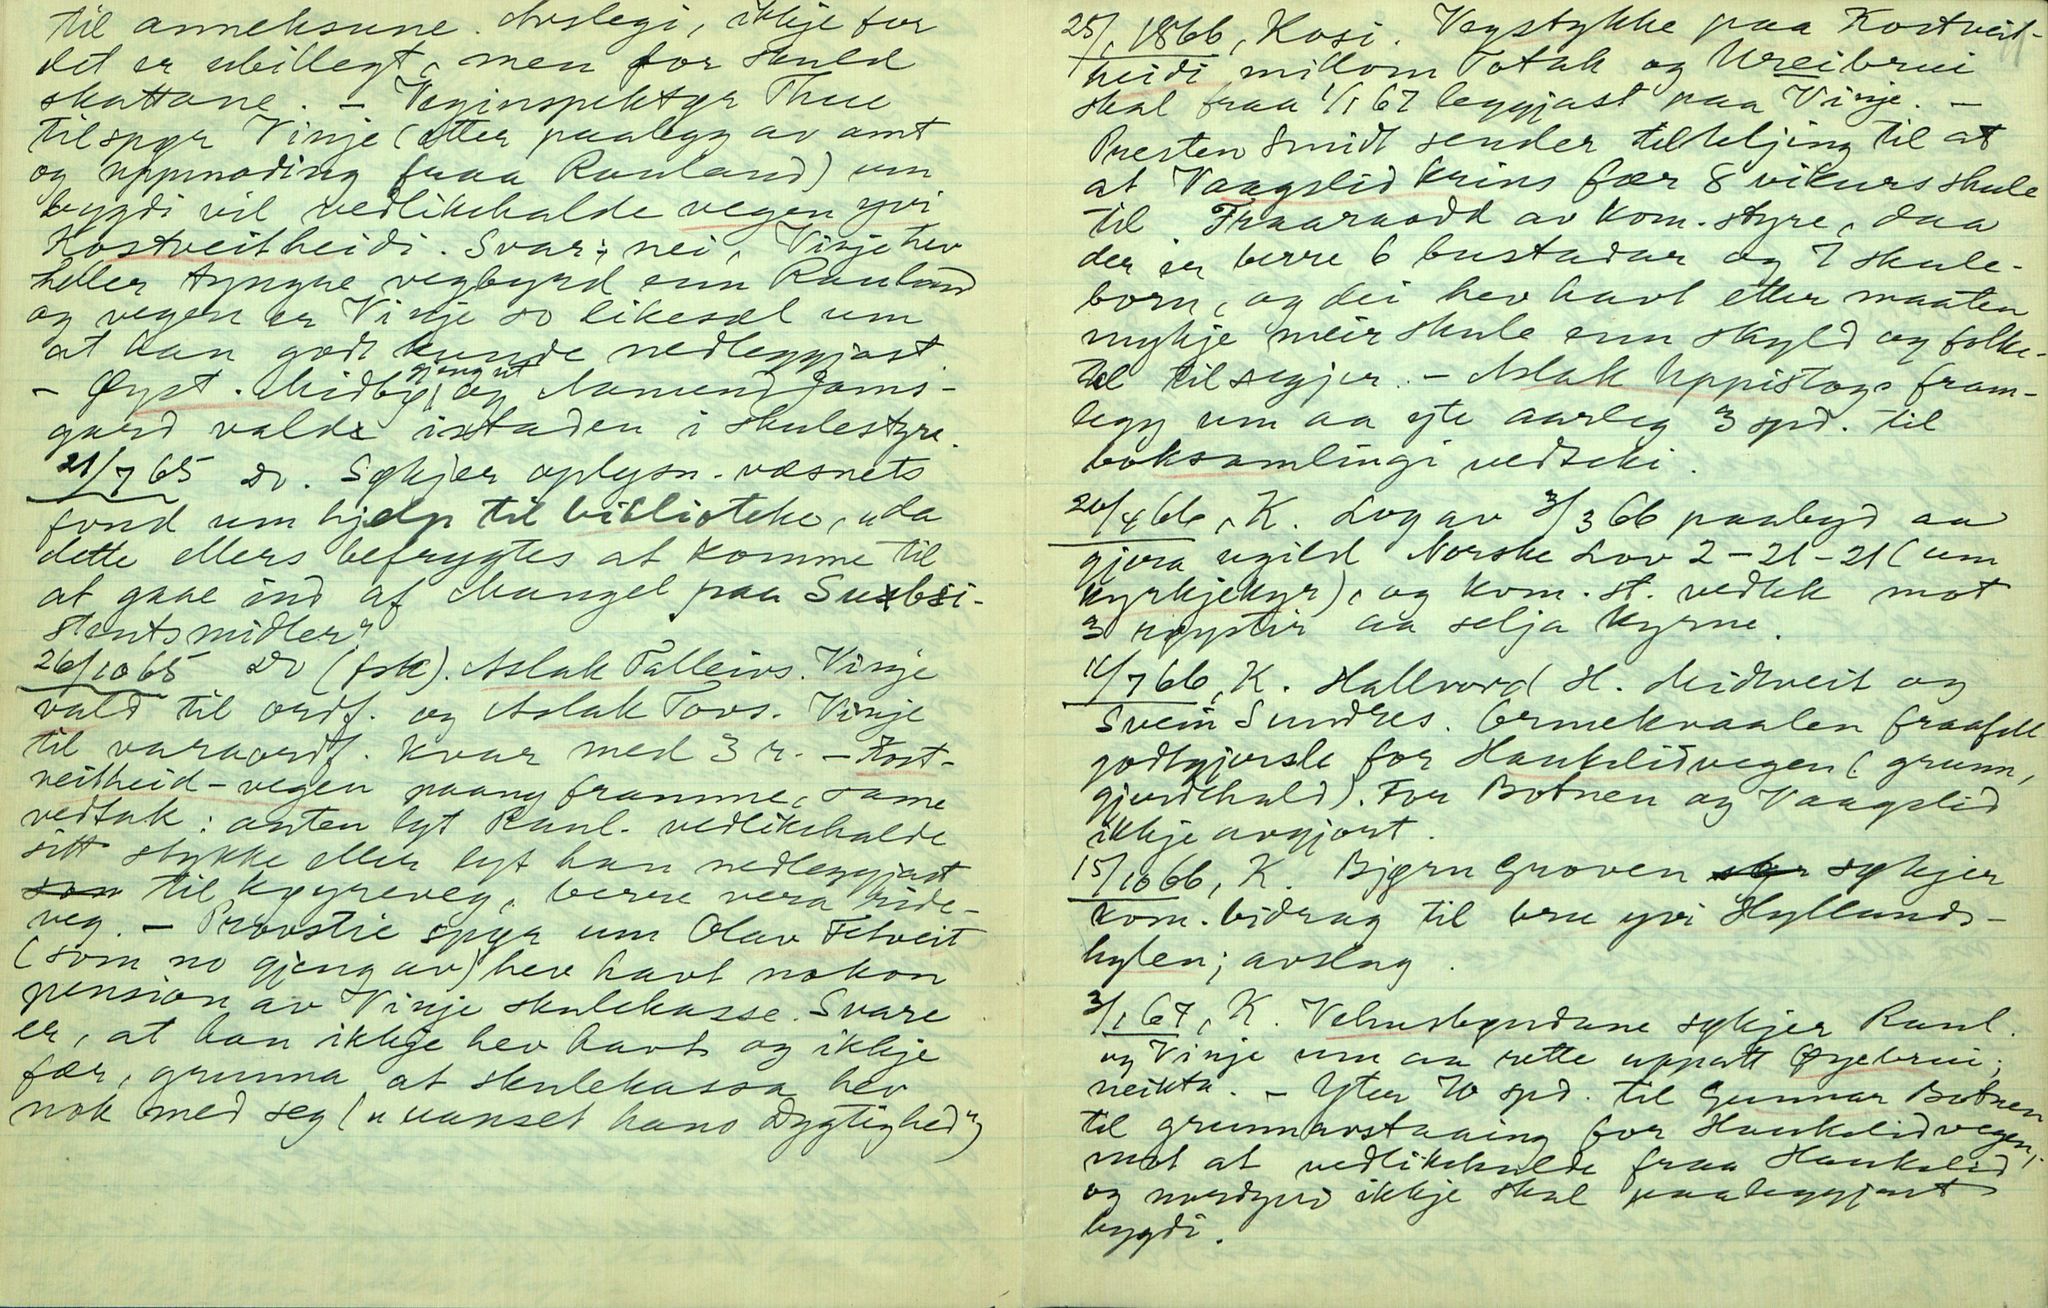 til anneksune. Avslegi, ikkje for
det er ubillegt, men for skuld
skattane. – Veginspektyr Thue
tilspyr Vinje (etter paalegg av amt
og uppmoding fraa Rauland) um
bygdi vil vedlikehalde vegen yvi
Kostveitheidi. Svar: nei, Vinje hev
heller tyngre vegbyrd enn Rauland
og vegen er Vinje so likesæl um
at han godt kunde nedleggjast.
– Øyst. Midbø gjeng ut og Aamund Jams-
gard valde istaden i skulestyre.
21/7 65 Do. Sykjer oplysn. væsnets
fond um hjelp til biblioteke, „da
dette ellers befrygtes at komme til
at gaae ind af Mangel paa Subsi-
stentsmidler"
26/10 65 Do (fsk). Aslak Talleivs. Vinje
vald til ordf. og Aslak Tovs. Vinje
til varaordf. kvar med 3 r. – Kost-
veitheid-vegen paany framme, same
vedtak: anten lyt Raul. vedlikehalde
sitt stykke eller lyt han nedleggjast
til kyyreveg, berre vera ride-
veg. – Provstie spyr um Olav Felveit
(som no gjeng av) hev havt nokon
pension av Vinje skulekasse. Svare
er, at han ikkje hev havt og ikkje
fær, grunna at skulekassa hev
nok med seg („uanset hans Dygtighed")
25/1 1866, Kosi. Vegstykke paa Kostveit-
heidi millom Totak og Ureibrui
skal fraa 1/1 67 leggjast paa Vinje. –
Presten Smidt sender tilteljing til at
at Vaagslid krins fær 8 vikurs skule
til Fraaraadd av kom.styre, daa
der er berre 6 bustadar og 7 skule-
born, og dei hev havt etter maaten
mykje meir skule enn skyld og folke-
tal tilsegjer. – Aslak Uppistogs fram-
legg um aa yte aarleg 3 spd. til
boksamlingi vedteki.
26/4 66, K. Lov av 3/3 66 paabyd aa
gjera ugild Norske Lov 2–21–21 (um
kyrkjekyr), og kom.st. vedtek mot
3 røystir aa selja kyrne.
11/7 66, K. Hallvord H. Midtveit og
Svein Sundres. Ormekvaalen fraafell
godtgjersle for Haukelidvegen (grunn,
gjerdehald). For Botnen og Vaagslid
ikkje avgjort.
15/10 66, K. Bjørn Groven sykjer
kom.bidrag til bru yvi Hyllands-
hylen; avslag.
3/1 67, K. Vehusbyrdane sykjer Raul.
og Vinje um aa rette uppatt Øyebrui;
neikta. – Yter 10 spd. til Gunnar Botnen
til grunnavstaaing for Haukelidvegen,
mot at vedlikehalde fraa Haukelid
og nordyvi ikkje skal paaleggjast
bygdi.